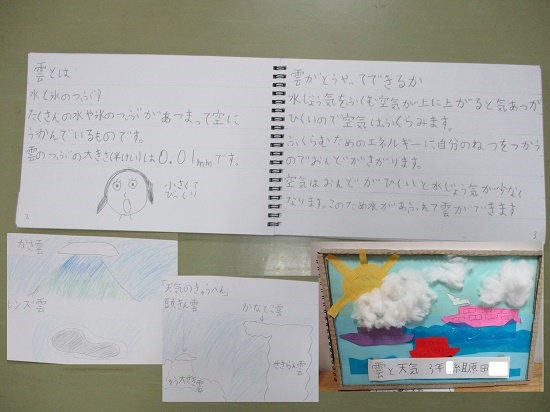 雲とは
水と氷のつぶ!
たくさんの水や氷のつぶがあつまって空に
うかんでいるものです。
雲のつぶの大きさ(半けい)は0.01mmです。
小さくて
びっくり
雲がどうやってできるか
水じょう気をふくむ空気が上に上がると気あつが
ひくいので空気はふくらみます。
ふくらむためのエネルギーに自分のねつをつかう
のでおんどがさがります。
空気はおんどがひくいと水じょう気が少なく
なります。このため水があふれて雲ができます
3
かさ雲
レンズ雲
「天気のきゅうへん」
かなとこ雲
せきらん雲
雲と天気 3年 組原田